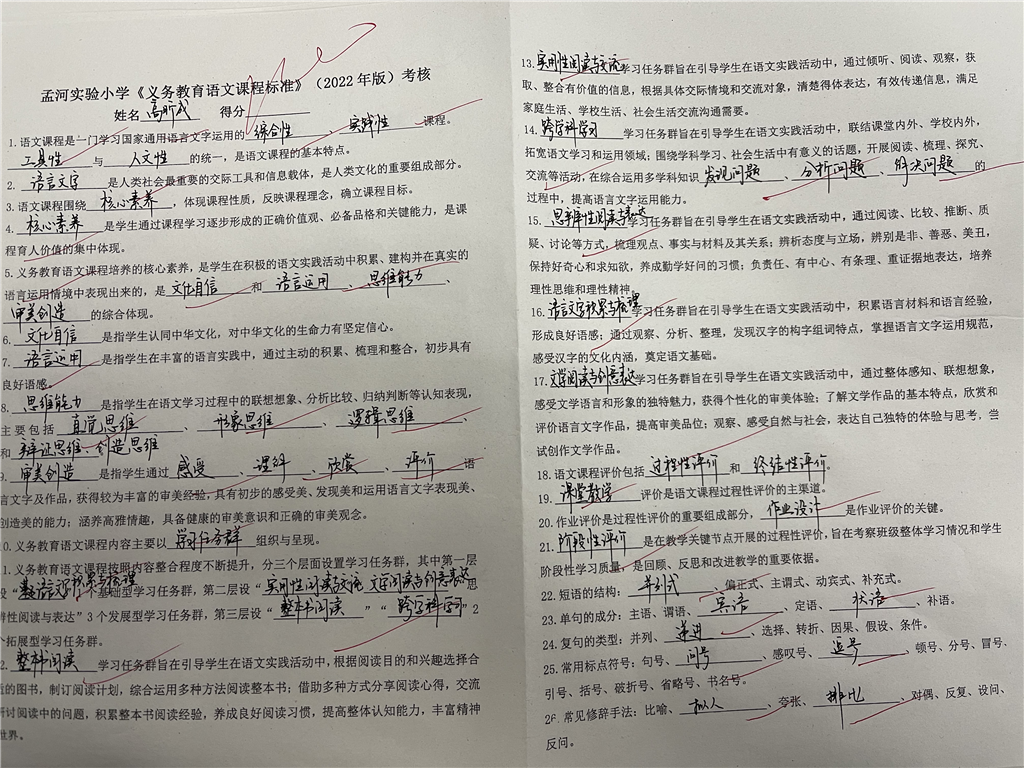 孟河实验小学《义务教育语文课程标准》（2022年版）考核
姓名 高昕成 得分
1.语文课程是一门学习国家通用语言文字运用的 综合性 、 实践性 课程。
工具性 与 人文性 的统一，是语文课程的基本特点。
2. 语言文字 是人类社会最重要的交际工具和信息载体，是人类文化的重要组成部分。
3.语文课程围绕 核心素养 ，体现课程性质，反映课程理念，确立课程目标。
4. 核心素养 是学生通过课程学习逐步形成的正确价值观、必备品格和关键能力，是课
程育人价值的集中体现。
5.义务教育语文课程培养的核心素养，是学生在积极的语文实践活动中积累、建构并在真实的
语言运用情境中表现出来的，是 文化自信 和 语言运用 、 思维能力 、
审美创造 的综合体现。
6. 文化自信 是指学生认同中华文化，对中华文化的生命力有坚定信心。
7. 语言运用 是指学生在丰富的语言实践中，通过主动的积累、梳理和整合，初步具有
良好语感。
8. 思维能力 是指学生在语文学习过程中的联想想象、分析比较、归纳判断等认知表现，
主要包括 直觉思维 、 形象思维 、 逻辑思维 、
和 辩证思维、创造思维
9. 审美创造 是指学生通过 感受 、 理解 、 欣赏 、 评价 语
言文字及作品，获得较为丰富的审美经验，具有初步的感受美、发现美和运用语言文字表现美、
创造美的能力；涵养高雅情趣，具备健康的审美意识和正确的审美观念。
10.义务教育语文课程内容主要以 学习任务群 组织与呈现。
1.义务教育语文课程按照内容整合程度不断提升，分三个层面设置学习任务群，其中第一层
设“ 语言文字积累与梳理 个基础型学习任务群，第二层设“ 实用性阅读与交流 文学阅读与创意表达 思
辨性阅读与表达”3个发展型学习任务群，第三层设“ 整本书阅读 ”“ 跨学科学习 ”2
个拓展型学习任务群。
2. 整本书阅读 学习任务群旨在引导学生在语文实践活动中，根据阅读目的和兴趣选择合
适的图书，制订阅读计划，综合运用多种方法阅读整本书；借助多种方式分享阅读心得，交流
研讨阅读中的问题，积累整本书阅读经验，养成良好阅读习惯，提高整体认知能力，丰富精神
世界。
13. 实用性阅读与交流 学习任务群旨在引导学生在语文实践活动中，通过倾听、阅读、观察，获
取、整合有价值的信息，根据具体交际情境和交流对象，清楚得体表达，有效传递信息，满足
家庭生活、学校生活、社会生活交流沟通需要。
14. 跨学科学习 学习任务群旨在引导学生在语文实践活动中，联结课堂内外、学校内外，
拓宽语文学习和运用领域；围绕学科学习、社会生活中有意义的话题，开展阅读、梳理、探究、
交流等活动，在综合运用多学科知识 发现问题 、 分析问题 、 解决问题 的
过程中，提高语言文字运用能力。
15. 思辨性阅读与表达 学习任务群旨在引导学生在语文实践活动中，通过阅读、比较、推断、质
疑、讨论等方式，梳理观点、事实与材料及其关系；辨析态度与立场，辨别是非、善恶、美丑，
保持好奇心和求知欲，养成勤学好问的习惯；负责任、有中心、有条理、重证据地表达，培养
理性思维和理性精神。
16. 语言文字积累与梳理 学习任务群旨在引导学生在语文实践活动中，积累语言材料和语言经验，
形成良好语感；通过观察、分析、整理，发现汉字的构字组词特点，掌握语言文字运用规范，
感受汉字的文化内涵，奠定语文基础。
17. 文学阅读与创意表达 学习任务群旨在引导学生在语文实践活动中，通过整体感知、联想想象，
感受文学语言和形象的独特魅力，获得个性化的审美体验；了解文学作品的基本特点，欣赏和
评价语言文字作品，提高审美品位；观察、感受自然与社会，表达自己独特的体验与思考，尝
试创作文学作品。
18.语文课程评价包括 过程性评价 和 终结性评价 。
19. 课堂教学 评价是语文课程过程性评价的主渠道。
20.作业评价是过程性评价的重要组成部分， 作业设计 是作业评价的关键。
21. 阶段性评价 是在教学关键节点开展的过程性评价，旨在考察班级整体学习情况和学生
阶段性学习质量，是回顾、反思和改进教学的重要依据。
22.短语的结构： 并列式 、偏正式、主谓式、动宾式、补充式。
23.单句的成分：主语、谓语、 宾语 、定语、 状语 、补语。
24.复句的类型：并列、 递进 、选择、转折、因果、假设、条件。
25.常用标点符号：句号、 问号 、感叹号、 逗号 、顿号、分号、冒号、
引号、括号、破折号、省略号、书名号。
26.常见修辞手法：比喻、 拟人 、夸张、 排比 、对偶、反复、设问、
反问。